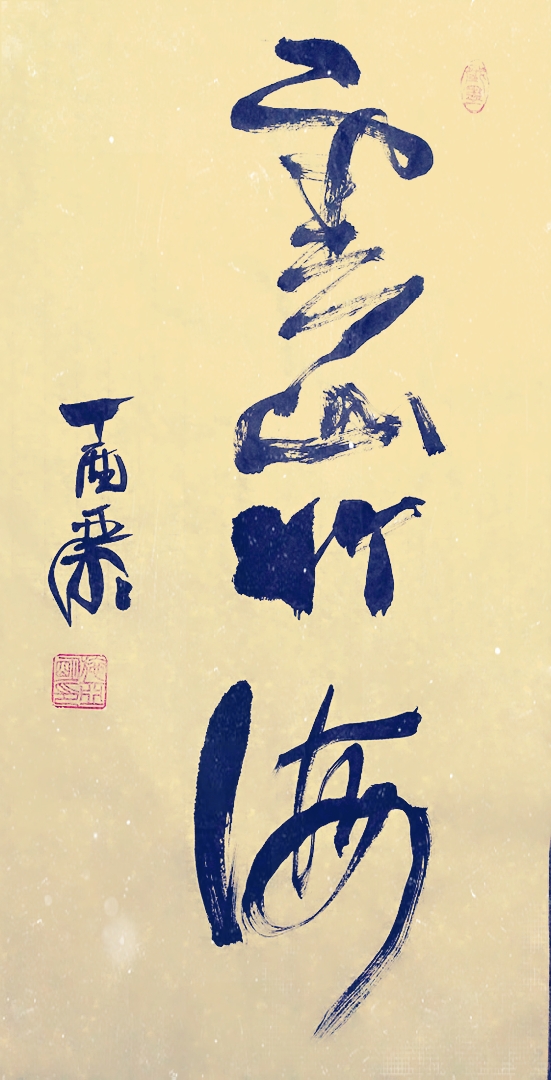 雲山竹海
丁酉